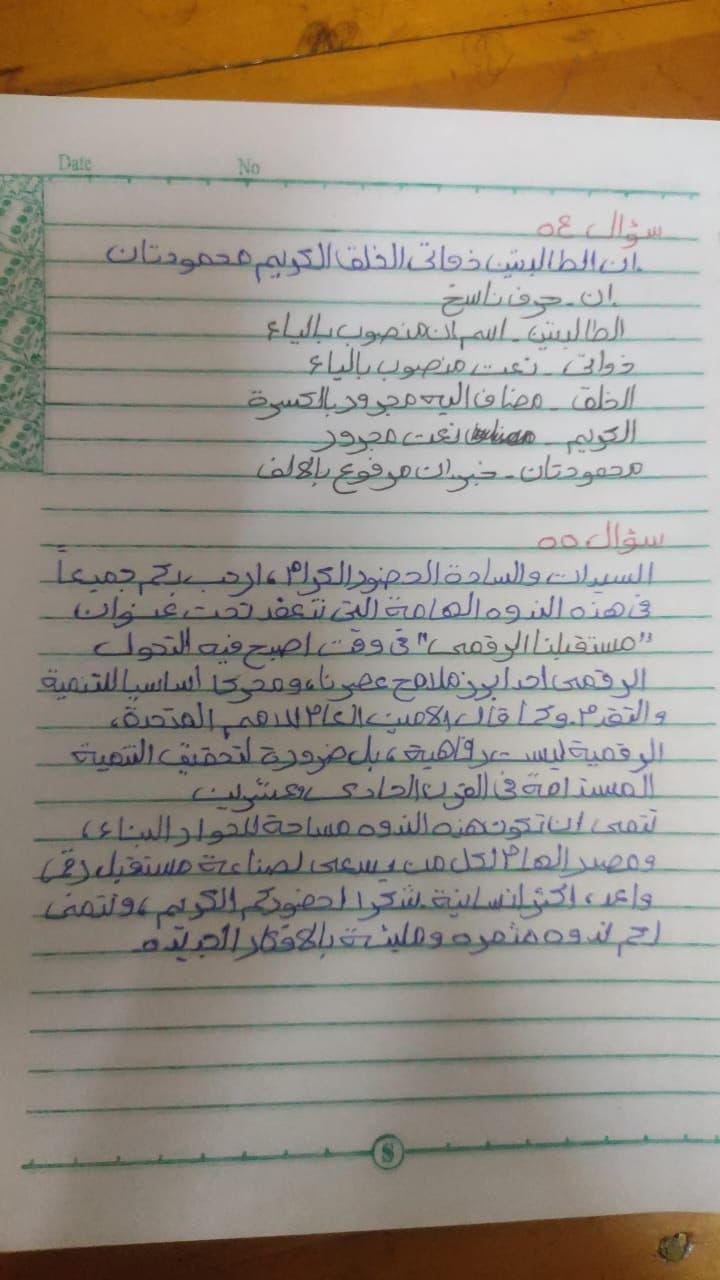 Date No
سؤال ٥٤
إن الطالبتين ذواتي الخلق الكريم محمودتان
إن - حرف ناسخ
الطالبتين - اسم إن منصوب بالياء
ذواتي - نعت منصوب بالياء
الخلق - مضاف اليه مجرور بالكسرة
الكريم - نعت مجرور
محمودتان - خبر ان مرفوع بالالف
سؤال ٥٥
السيدات والسادة الحضور الكرام، ارحب بكم جميعاً
في هذه الندوه الهامة التي تنعقد تحت عنوان
"مستقبلنا الرقمي" في وقت اصبح فيه التحول
الرقمي احد ابرز ملامح عصرنا، ومحركا أساسيا للتنمية
والتقدم. وكما قال الامين العام للامم المتحدة،
الرقمية ليست رفاهية، بل ضرورة لتحقيق التنمية
المستدامة في القرن الحادي وعشرين
نتمى ان تكون هذه الندوه مساحة للحوار البناء،
ومصدر الهام لكل من يسعى لصناعة مستقبل رقمي
واعد، اكثر انسانية. شكرا لحضوركم الكريم، ونتمنى
لكم ندوه مثمره ومليئة بالافكار الجديده.
8